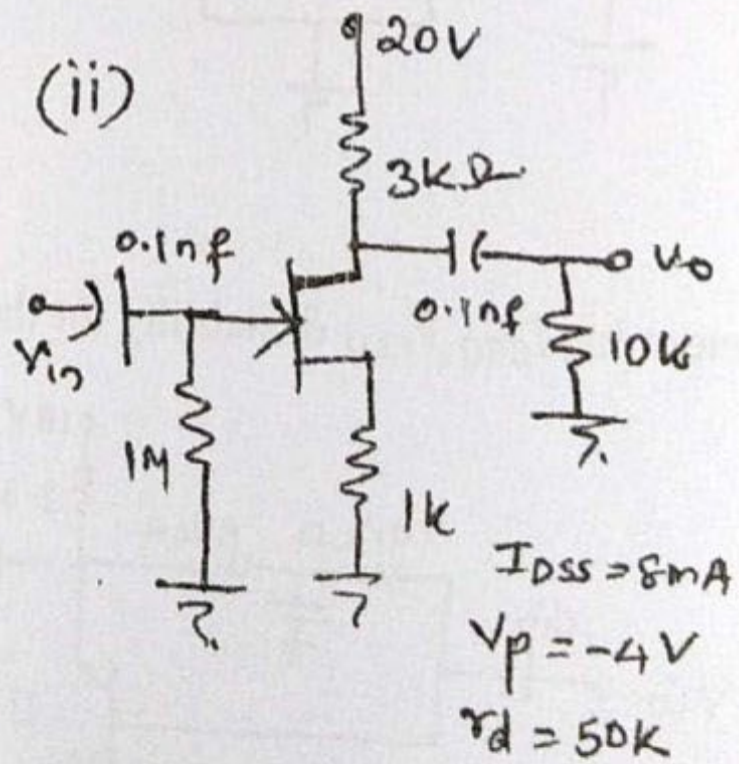 (ii)
20V
3kΩ
0.1nf
Vin
0.1nf
Vo
10k
1M
1k
IDSS = 8mA
Vp = -4V
rd = 50K